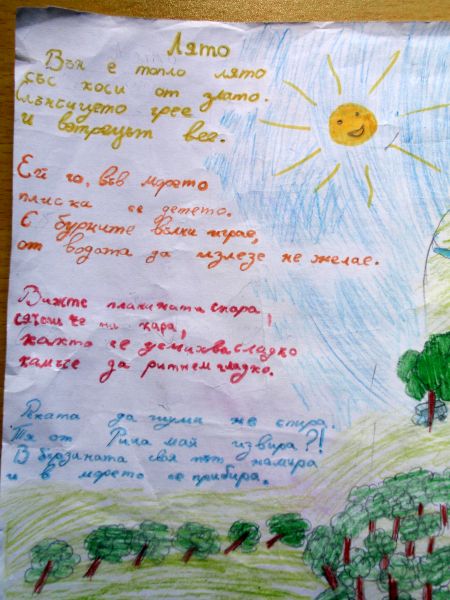 Лято
Вън е топло лято
със коси от злато.
Слънсицето грее
и ветрецът вее.
Ей го, във морето
плиска се детето.
С бурните вълни играе,
от водата да излезе не желае.
Вижте планината стара,
сякаш че ни кара,
както се усмихва сладко
камъче да ритнем гладко.
Реката да шуми не спира.
Тя от Рила май извира?!
В бързината своя път намира
и в морето се прибира.